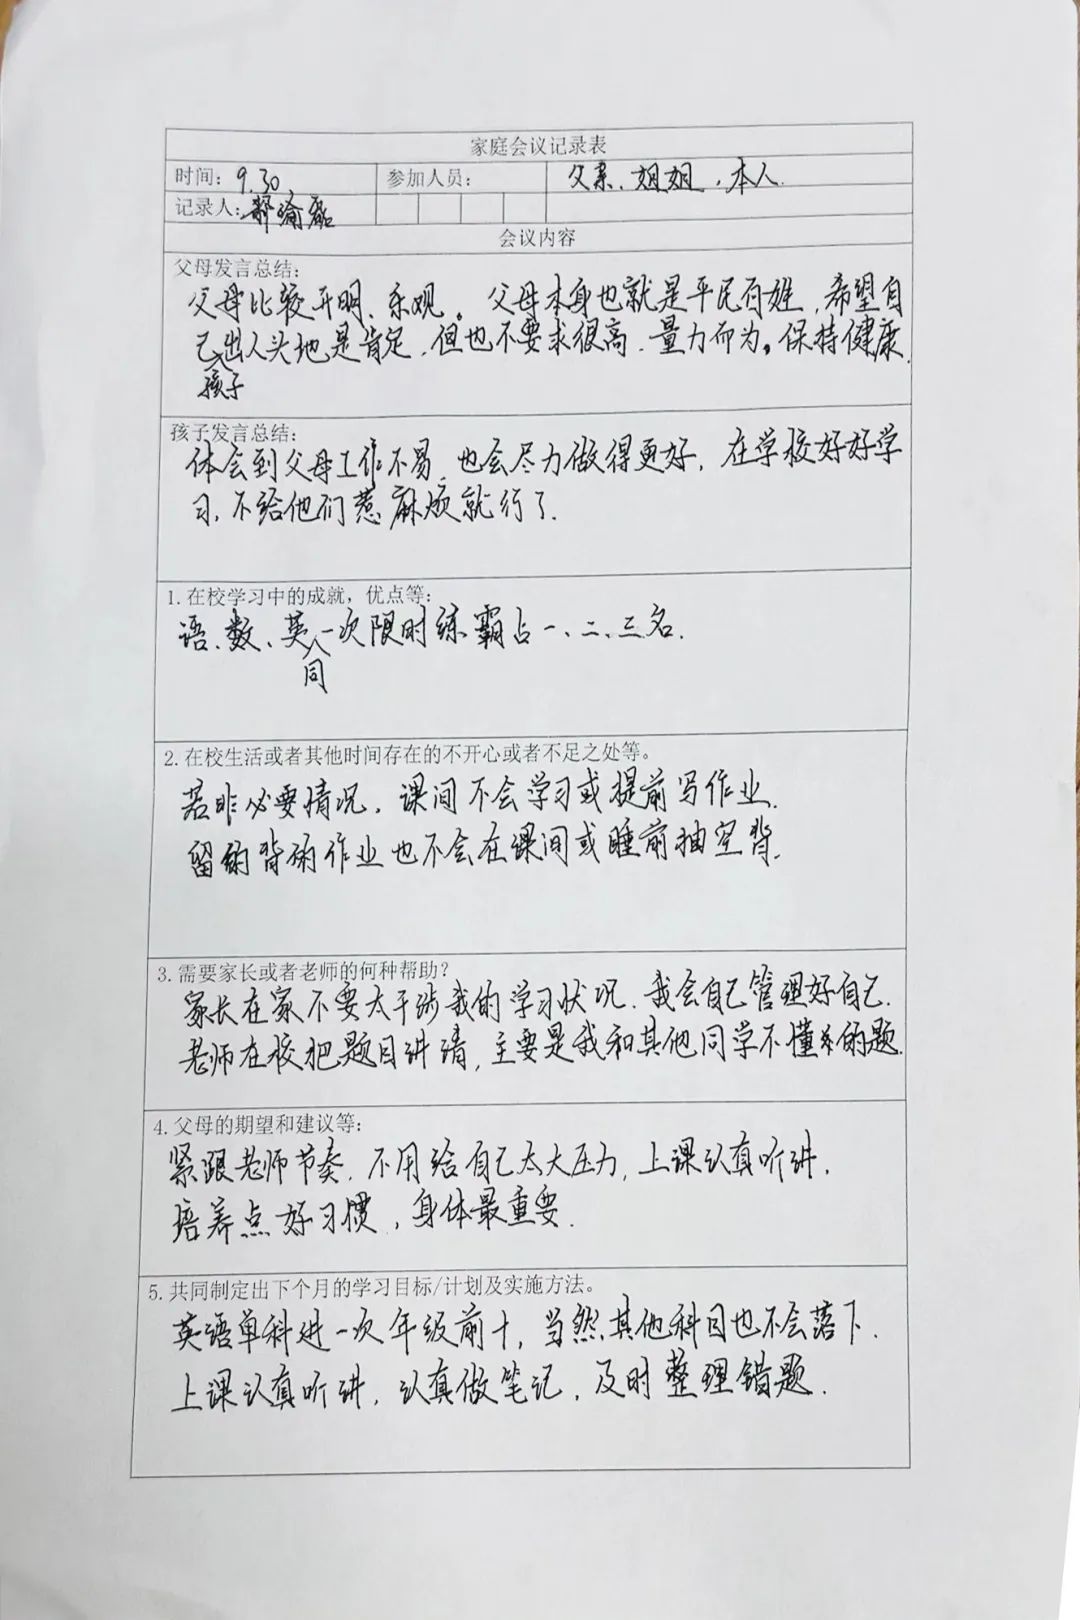 家庭会议记录表
时间：9.30 参加人员： 父亲、姐姐、本人.
记录人：瑜磊
会议内容
父母发言总结：
父母比较开明、乐观。父母本身也就是平民百姓，希望自
己孩子出人头地是肯定，但也不要求很高，量力而为。保持健康.
孩子发言总结：
体会到父母工作不易，也会尽力做得更好，在学校好好学
习，不给他们惹麻烦就行了.
1.在校学习中的成就，优点等：
语、数、英同一次限时练霸占一、二、三名.
2.在校生活或者其他时间存在的不开心或者不足之处等。
若非必要情况，课间不会学习或提前写作业.
留的背的作业也不会在课间或睡前抽空背.
3.需要家长或者老师的何种帮助？
家长在家不要太干涉我的学习状况，我会自己管理好自己.
老师在校把题目讲清，主要是我和其他同学不懂的题.
4.父母的期望和建议等：
紧跟老师节奏，不用给自己太大压力，上课认真听讲，
培养点好习惯，身体最重要.
5.共同制定出下个月的学习目标/计划及实施方法。
英语单科进一次年级前十，当然其他科目也不会落下.
上课认真听讲，认真做笔记，及时整理错题.